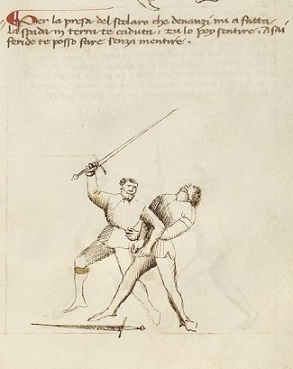 Per la presa del scolaro che denanzi mi a fatta /
la spada in terra te caduta / tu lo poy sentire . Asai
feride te posso fare senza mentire .